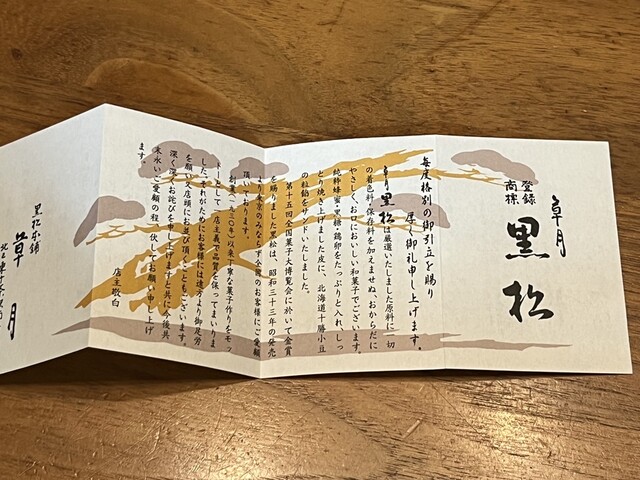 皐月
登録
商標
黒松
毎度格別の御引立を賜り
厚く御礼申し上げます。
皐月黒松は厳選いたしました原料に一切
の着色料・保存料を加えませぬ、おからだに
やさしく、お口においしい和菓子でございます。
純粋蜂蜜・黒糖・鶏卵をたっぷりと入れ、しっ
とり焼き上げました皮に、北海道十勝小豆
の粒餡をサンドいたしました。
第十五回全国菓子大博覧会に於いて金賞
を賜りました黒松は、昭和三十三年の発売
より東京のみならず全国のお客様にご愛顧
頂いております。
創業(一九三〇年)以来丁寧な菓子作りをモッ
トーとして一店主義で品質を保ってまいりま
した。それがためにお客様には遠方より御足労
を願い又店頭にお並び頂くこともございます。
深く深くお詫びを申し上げますと共に今後共
末永いご愛顧の程、伏してお願い申し上げ
ます。
店主敬白
黒松本舗
草月